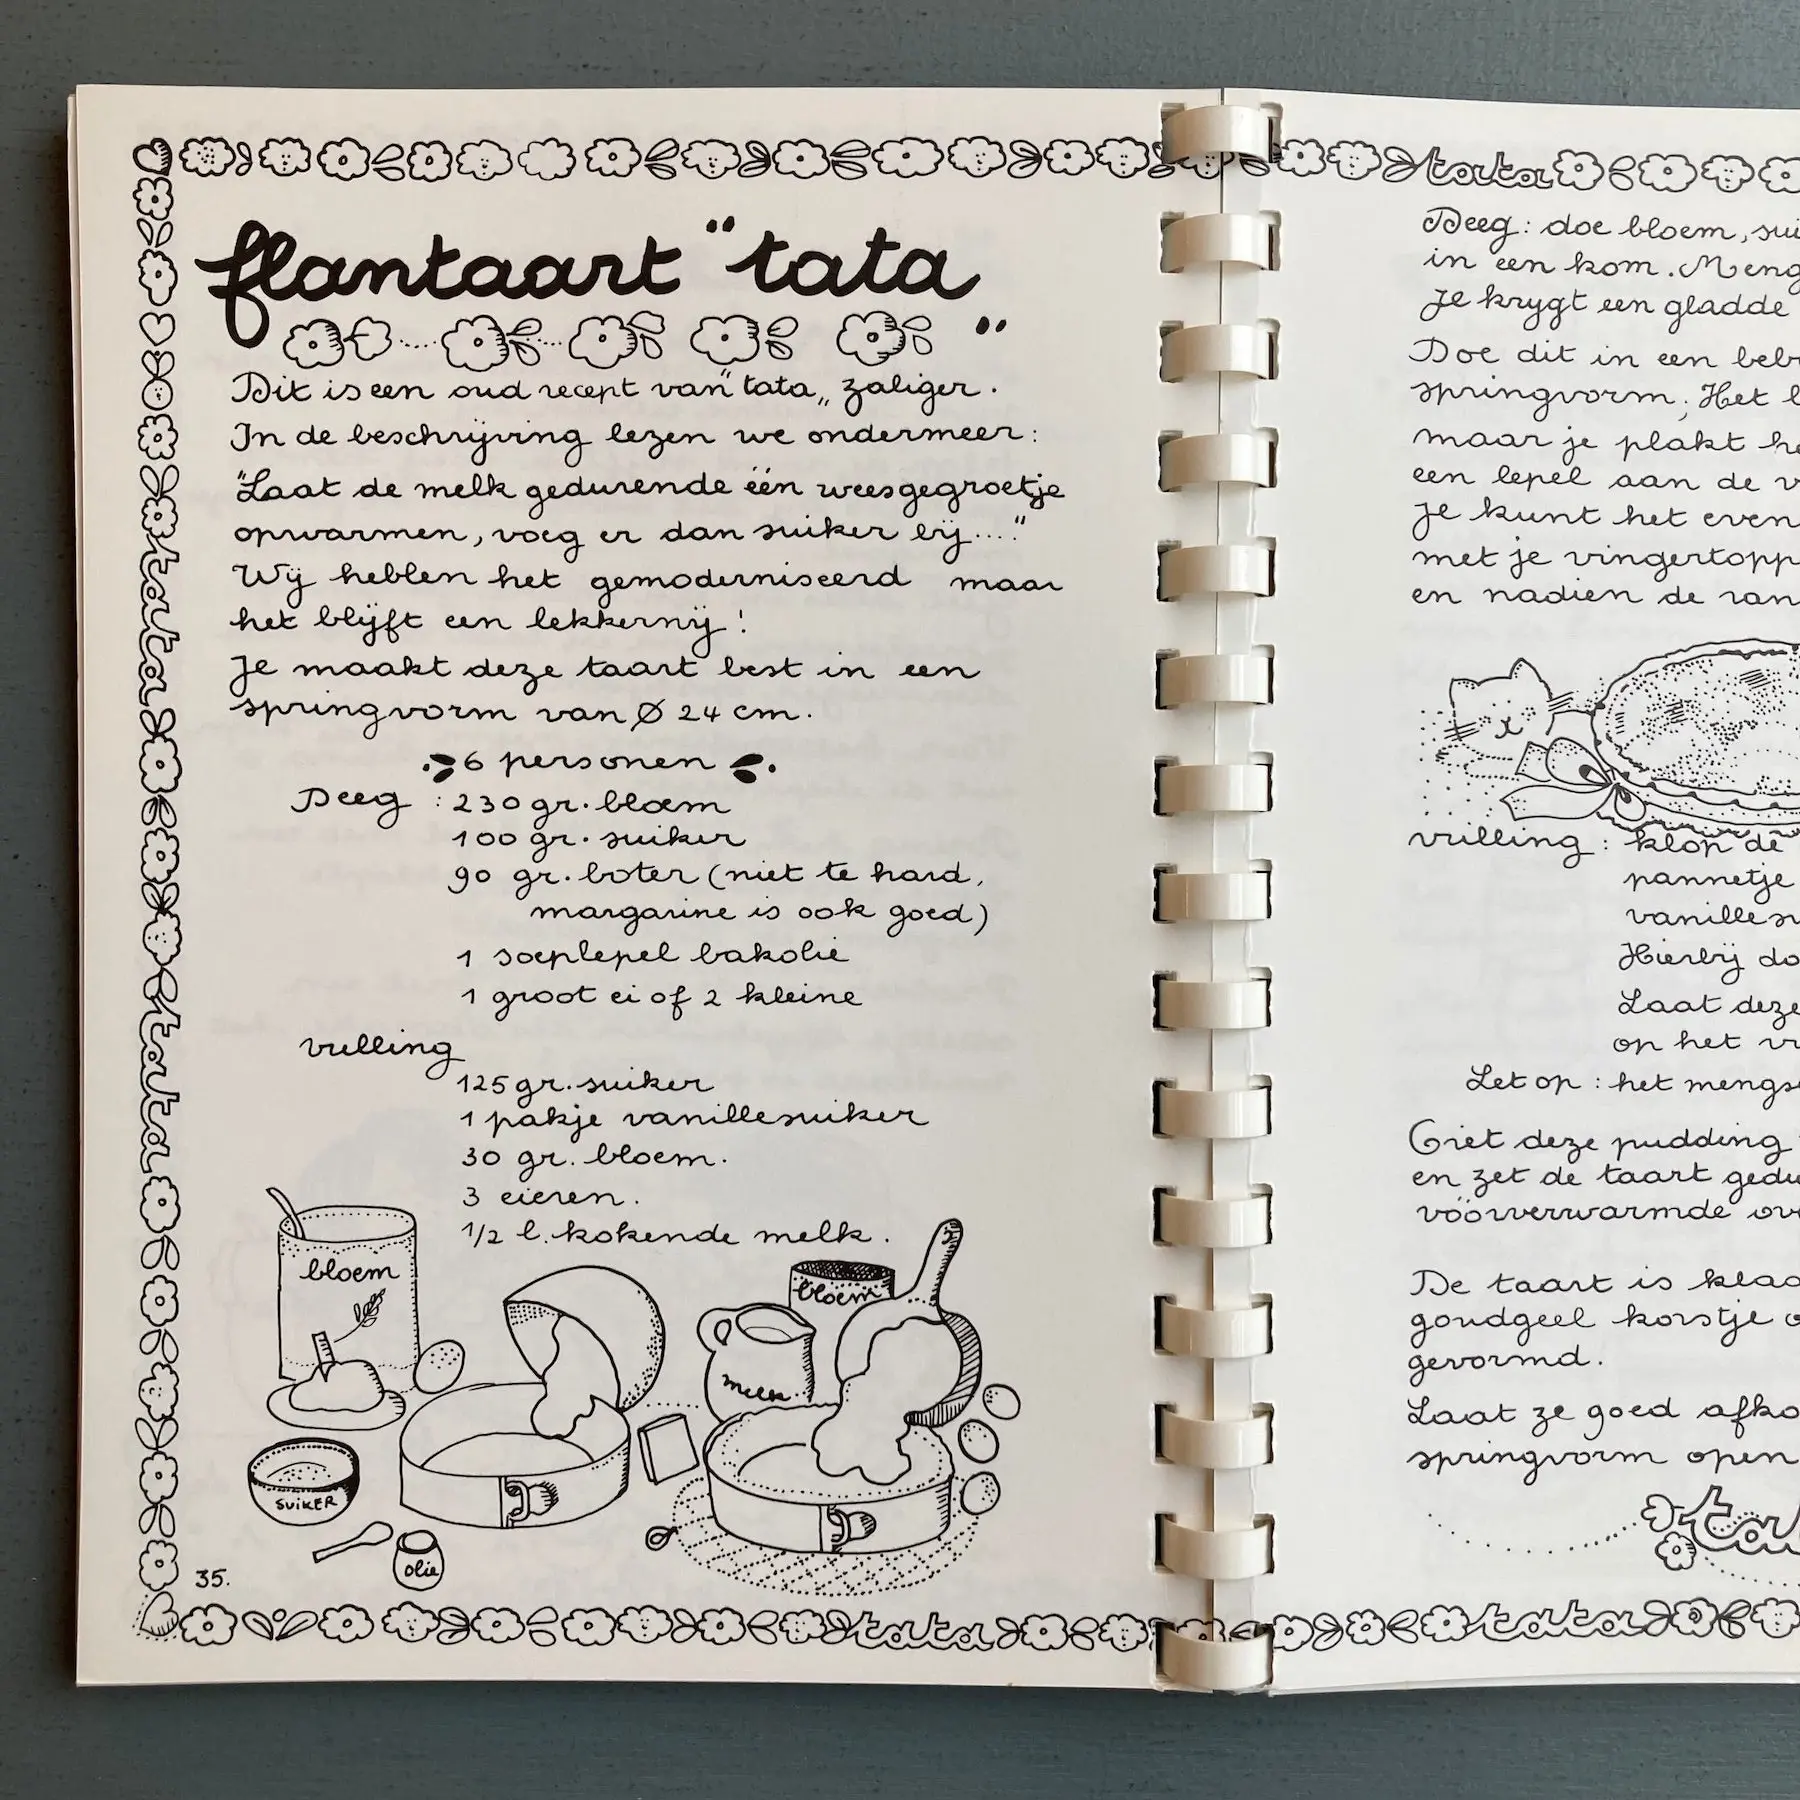 flantaart "tata"
Dit is een oud recept van "tata" zaliger.
In de beschrijving lezen we ondermeer:
"Laat de melk gedurende één weesgegroetje
opwarmen, voeg er dan suiker bij...."
Wij hebben het gemoderniseerd maar
het blijft een lekkernij!
Je maakt deze taart best in een
springvorm van Ø 24 cm.
6 personen
Deeg : 230 gr. bloem
100 gr. suiker
90 gr. boter (niet te hard,
margarine is ook goed)
1 soeplepel bakolie
1 groot ei of 2 kleine
vulling
125 gr. suiker
1 pakje vanillesuiker
30 gr. bloem.
3 eieren.
1/2 l. kokende melk.
bloem
bloem
melk
SUIKER
olie
35.
tata
tata
tata
tata
tata
Deeg : doe bloem, sui
in een kom. Meng
Je krygt een gladde
Doe dit in een beb
springvorm. Het
maar je plakt he
een lepel aan de
Je kunt het even
met je vingertopp
en nadien de ran
vulling : klop de
pannetje
vanillesu
Hierbij do
Laat deze
op het
Let op : het mengs
Giet deze pudding
en zet de taart gedu
vóórverwarmde ov
De taart is klaa
goudgeel korstje
gevormd.
Laat ze goed afko
springvorm open
tata